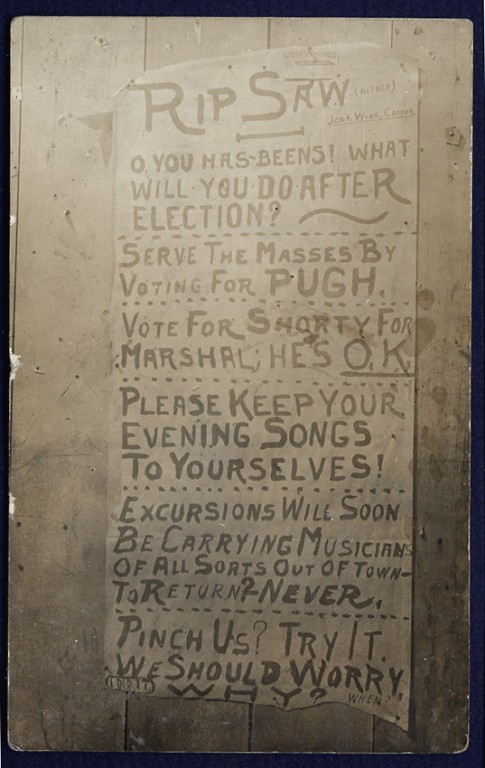 RIP SAW (WEEKLY)
Josh Wise, Editor
O YOU HAS-BEENS! WHAT
WILL YOU DO AFTER
ELECTION?
SERVE THE MASSES BY
VOTING FOR PUGH.
VOTE FOR SHORTY FOR
MARSHAL; HE'S O.K.
PLEASE KEEP YOUR
EVENING SONGS
TO YOURSELVES!
EXCURSIONS WILL SOON
BE CARRYING MUSICIANS
OF ALL SORTS OUT OF TOWN-
TO RETURN?-NEVER.
PINCH US? TRY IT.
WE SHOULD WORRY
WHY? WHEN?